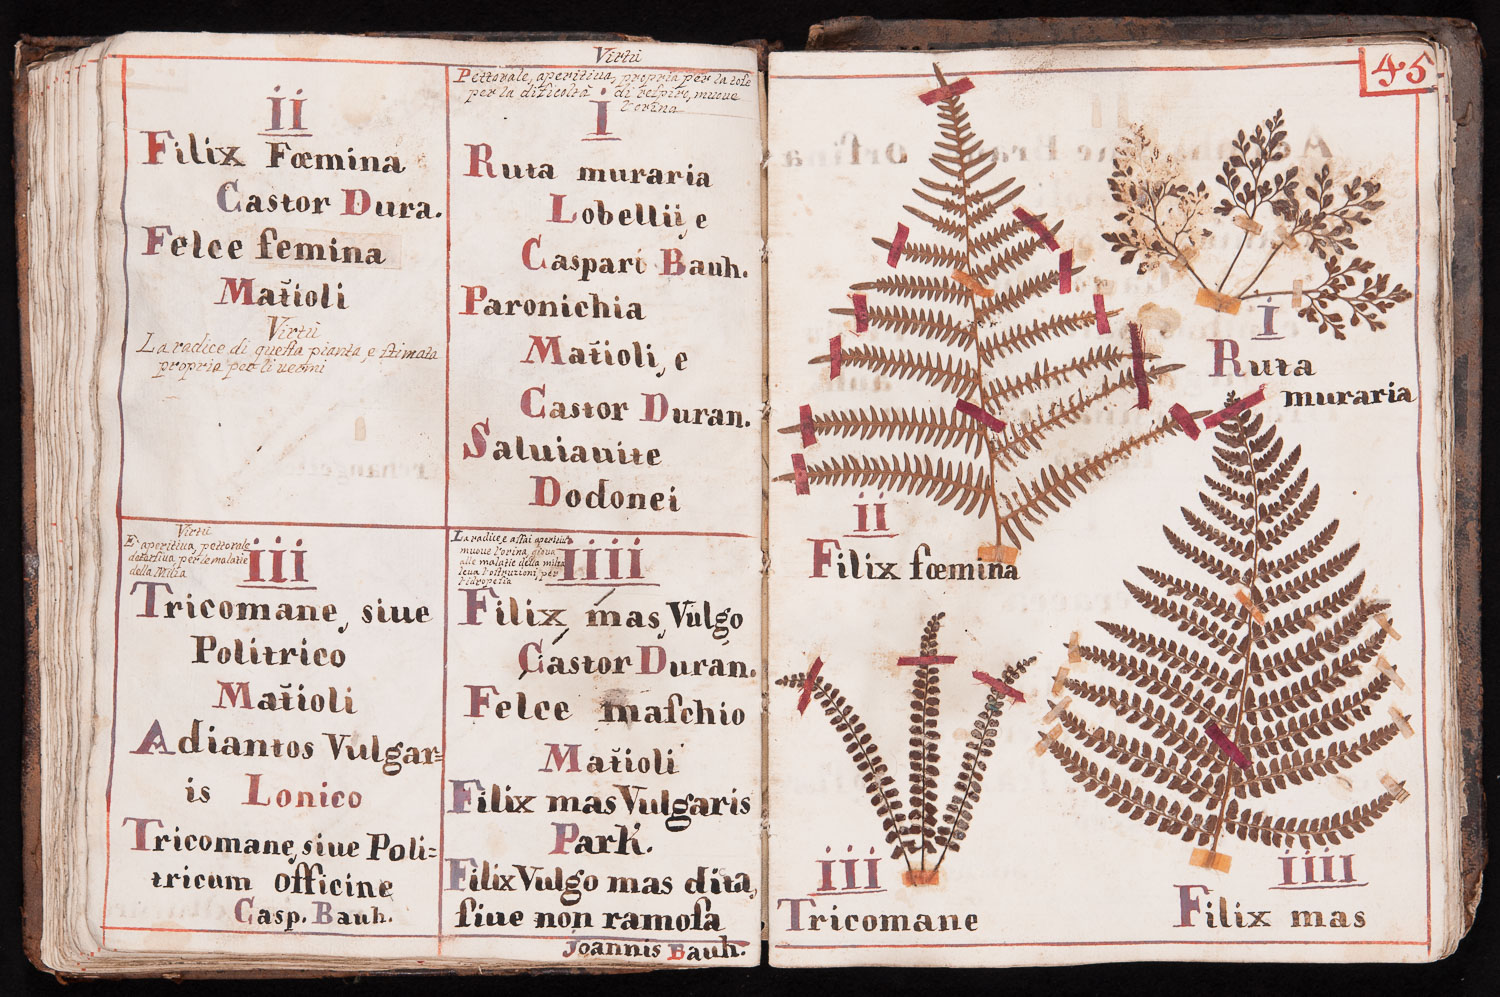 ii
Filix Fœmina
Castor Dura.
Felce femina
Matioli
Virtù
La radice di questa pianta e stimata
propria per li uermi
Virtù
Pettorale, aperitiua, propria per la tose
per la dificoltà di respiro, muoue
l'orina
i
Ruta muraria
Lobellij, e
Caspari Bauh.
Paronichia
Matioli, e
Castor Duran.
Saluiauite
Dodonei
Virtù
E aperitiua, pettorale
detersiua per le malatie
della Milza
iii
Tricomane, siue
Politrico
Matioli
Adiantos Vulgar=
is Lonico
Tricomane, siue Poli=
tricum officine
Casp. Bauh.
La radice e assai aperitiua
muoue l'orina, gioua
alle malatie della milza
leua l'ostruzioni, per
l'idropesia
iiii
Filix mas, Vulgo
Castor Duran.
Felce maschio
Matioli
Filix mas Vulgaris
Park.
Filix Vulgo mas dita,
siue non ramosa
Joannis Bauh.
45
i
Ruta
muraria
ii
Filix fœmina
iii
Tricomane
iiii
Filix mas